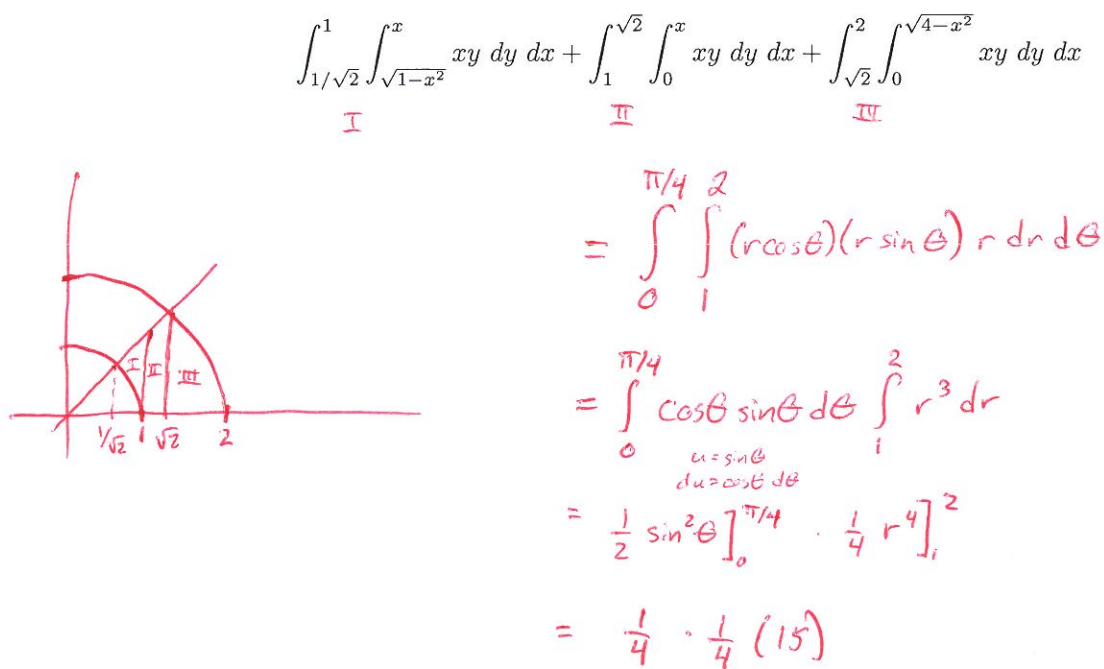 ∫_{1/√2}^{1} ∫_{√(1−x²)}^{x} xy dy dx + ∫_{1}^{√2} ∫_{0}^{x} xy dy dx + ∫_{√2}^{2} ∫_{0}^{√(4−x²)} xy dy dx
I II III
= ∫_{0}^{π/4} ∫_{1}^{2} (r cosθ)(r sinθ) r dr dθ
I II III
1/√2 1 √2 2
= ∫_{0}^{π/4} cosθ sinθ dθ ∫_{1}^{2} r³ dr
u = sinθ
du = cosθ dθ
= 1/2 sin²θ]_{0}^{π/4} · 1/4 r⁴]_{1}^{2}
= 1/4 · 1/4 (15)